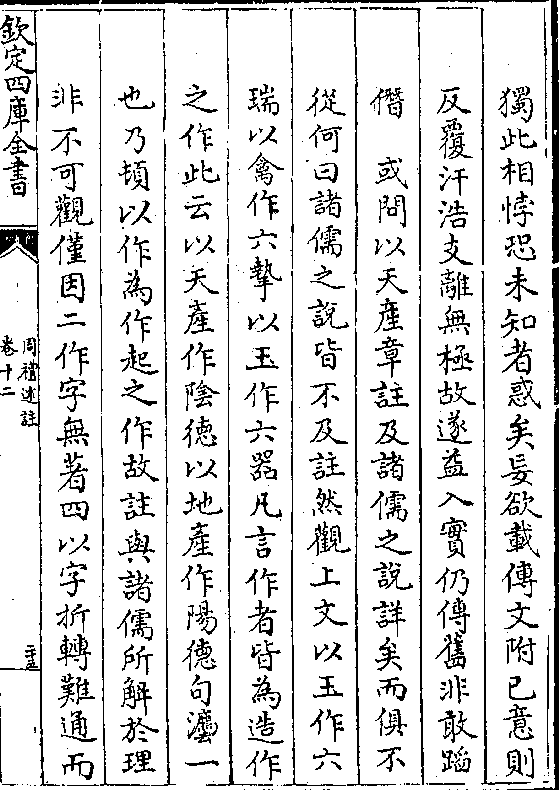 獨此相悖恐未知者惑矣妄欲載傳文附已意則
反覆汗浩支離無極故遂益入實仍傳舊非敢蹈
僭　或問以天產章註及諸儒之說詳矣而俱不
從何曰諸儒之說皆不及註然觀上文以玉作六
瑞以禽作六摯以玉作六器凡言作者皆為造作
之作此云以天產作陰德以地產作陽德句灋一
也乃頓以作為作起之作故註與諸儒所解於理
非不可觀僅因二作字無著四以字折轉難通而
欽定四庫全書
周禮述註
卷十二
二十五